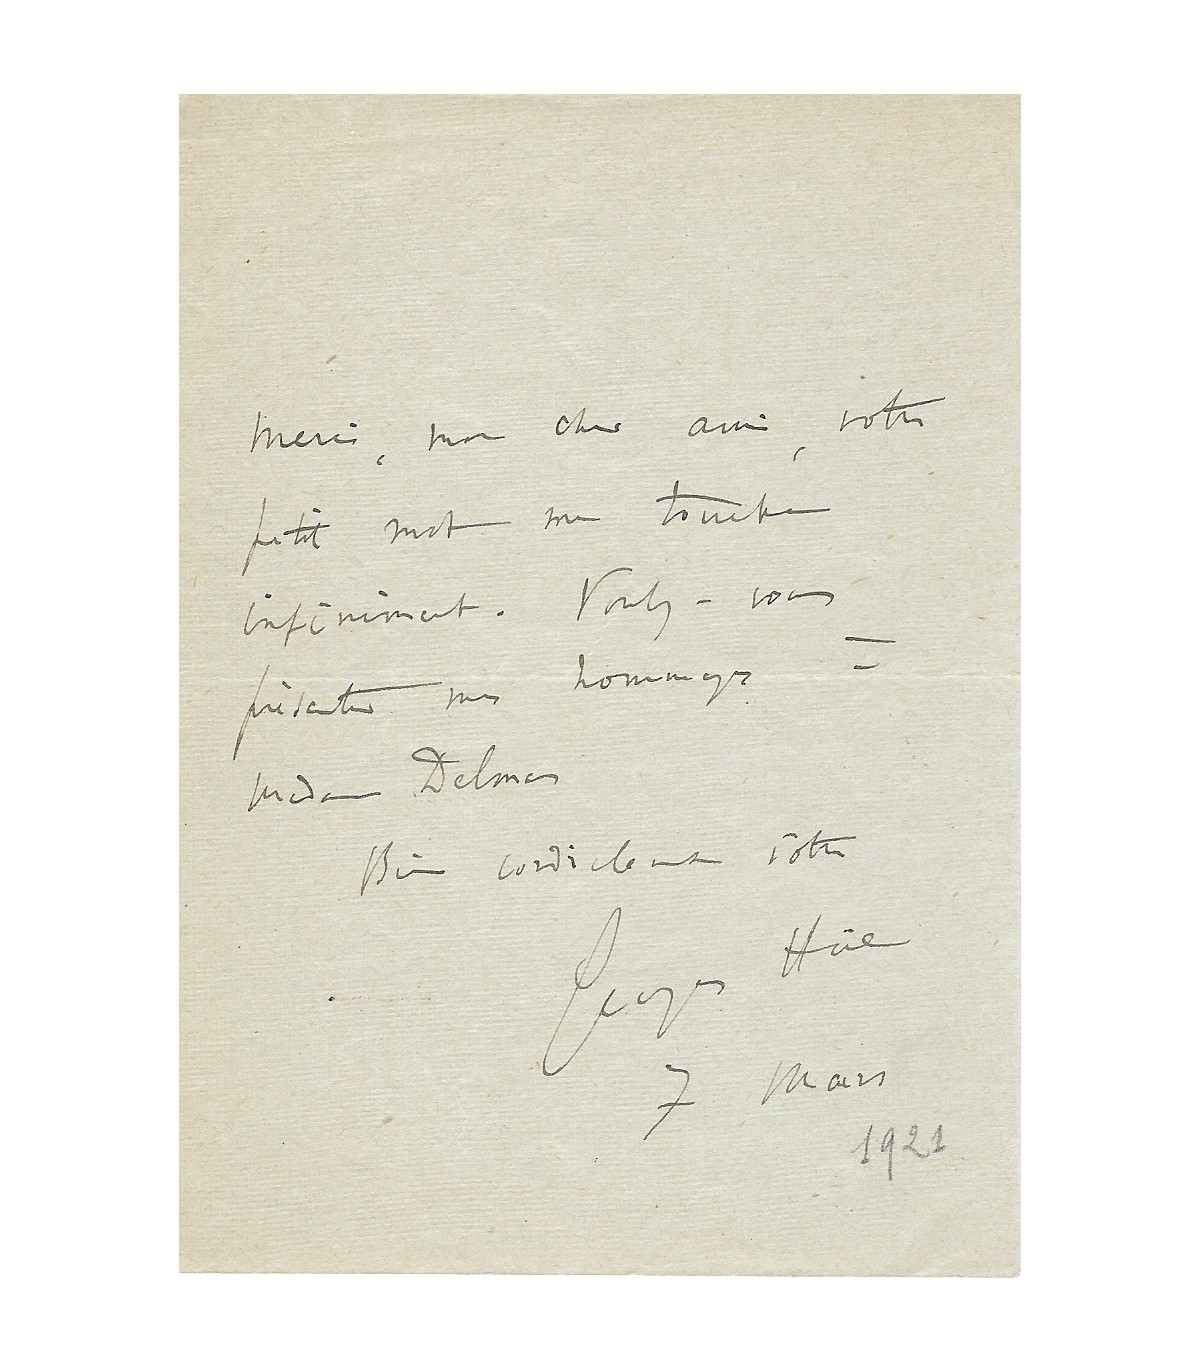 Merci, mon cher ami, votre
petit mot me touche
infiniment. Voulez-vous
présenter mes hommages à
Madame Delmas
Bien cordialement vôtre
Georges Hüe
7 Mars
1921